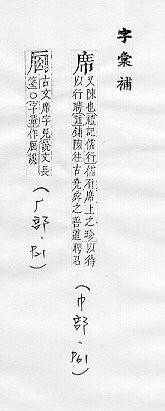 字彙補
席
又陳也禮記儒行儒有席上之珍以待
以行聘註鋪陳往古堯舜之善道聘召
(巾部·P61)
古文席字見說文長
箋○字彙作㕊誤
(厂部·P21)